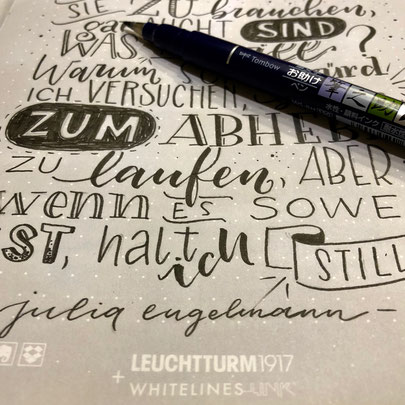 SIE ZU brauchen,
gar NICHT SIND
WAS ?
Warum
ICH VERSUCHEN,
ZUM ABHE
ZU laufen, ABER
wenn ES SOWE
IST, halt ich STILL
julia engelmann –
Tombow
お助け
ペン
水性・顔料インク
LEUCHTTURM1917
+ WHITELINES LINK